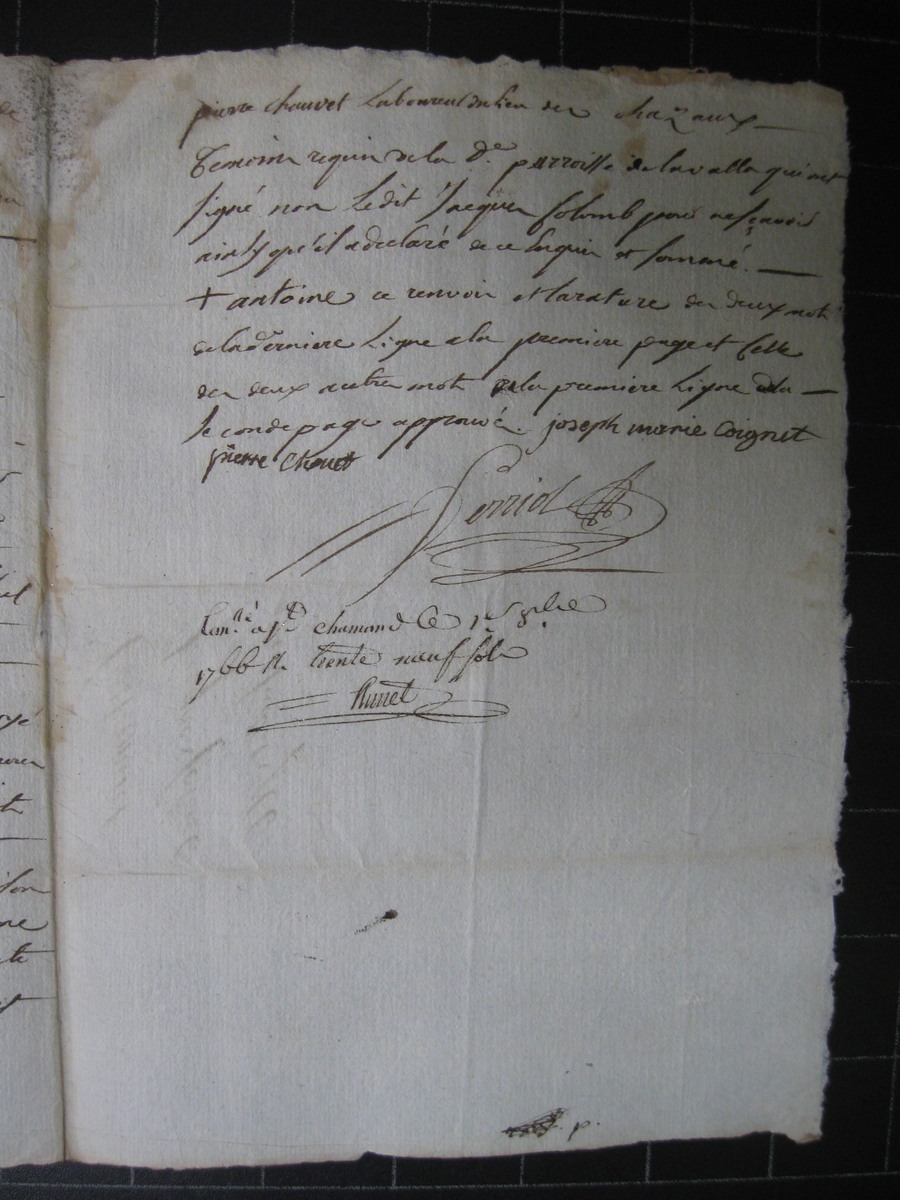 pierre chauvet Laboureur du lieu des chazaux
temoins requis de la dte parroisse de lavalla qui ont
signé non Ledit Jacques Colomb pour ne sçavoir
ainsy qu'il a declaré de ce enquis et sommé.
+ antoine ce renvoi et la rature des deux mots
de la derniere Ligne a la premiere page et celle
des deux autres mots de la premiere Ligne a la
seconde page approuvé. joseph marie Coignet
pierre Chovet
Ferriol
Con.lé a St chamond Ce 1er 8bre
1766 R. trente neuf sols
p.